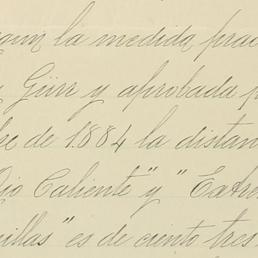 la medida prac
Gürr y aprobada p
re de 1.884 la distan
io Caliente" y "Extre
illas" es de ciento tres